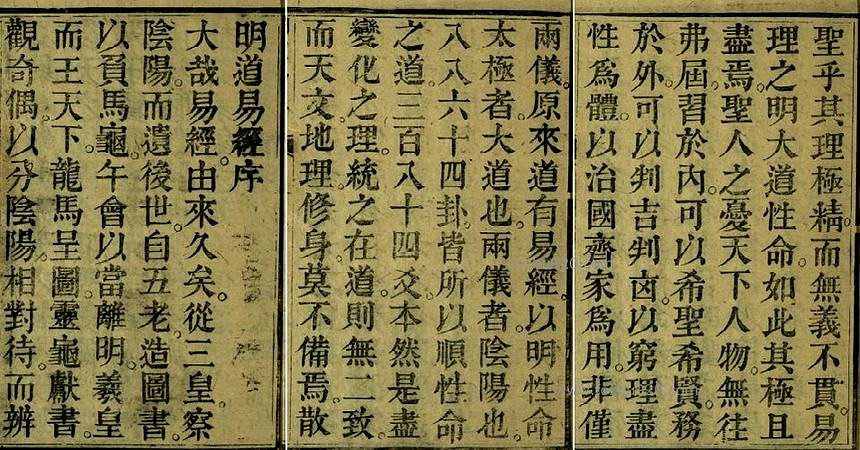 明道易經序
大哉易經。由來久矣。從三皇察
陰陽而遺後世。自五老造圖書。
以負馬龜。午會以當離明。羲皇
而王天下。龍馬呈圖。靈龜獻書。
觀奇偶。以分陰陽。相對待。而辨
兩儀。原來道有易經。以明性命
太極者大道也。兩儀者陰陽也。
八八六十四卦。皆所以順性命
之道。三百八十四爻。本然是盡
變化之理。統之在道。則無二致。
而天文。地理。修身。莫不備焉。散
聖乎其理極精。而無義不貫。易
理之明大道性命。如此其極且
盡焉。聖人之憂天下人物無往
弗屆。習於內。可以希聖希賢。務
於外。可以判吉判凶。以窮理盡
性爲體。以治國齊家爲用。非僅